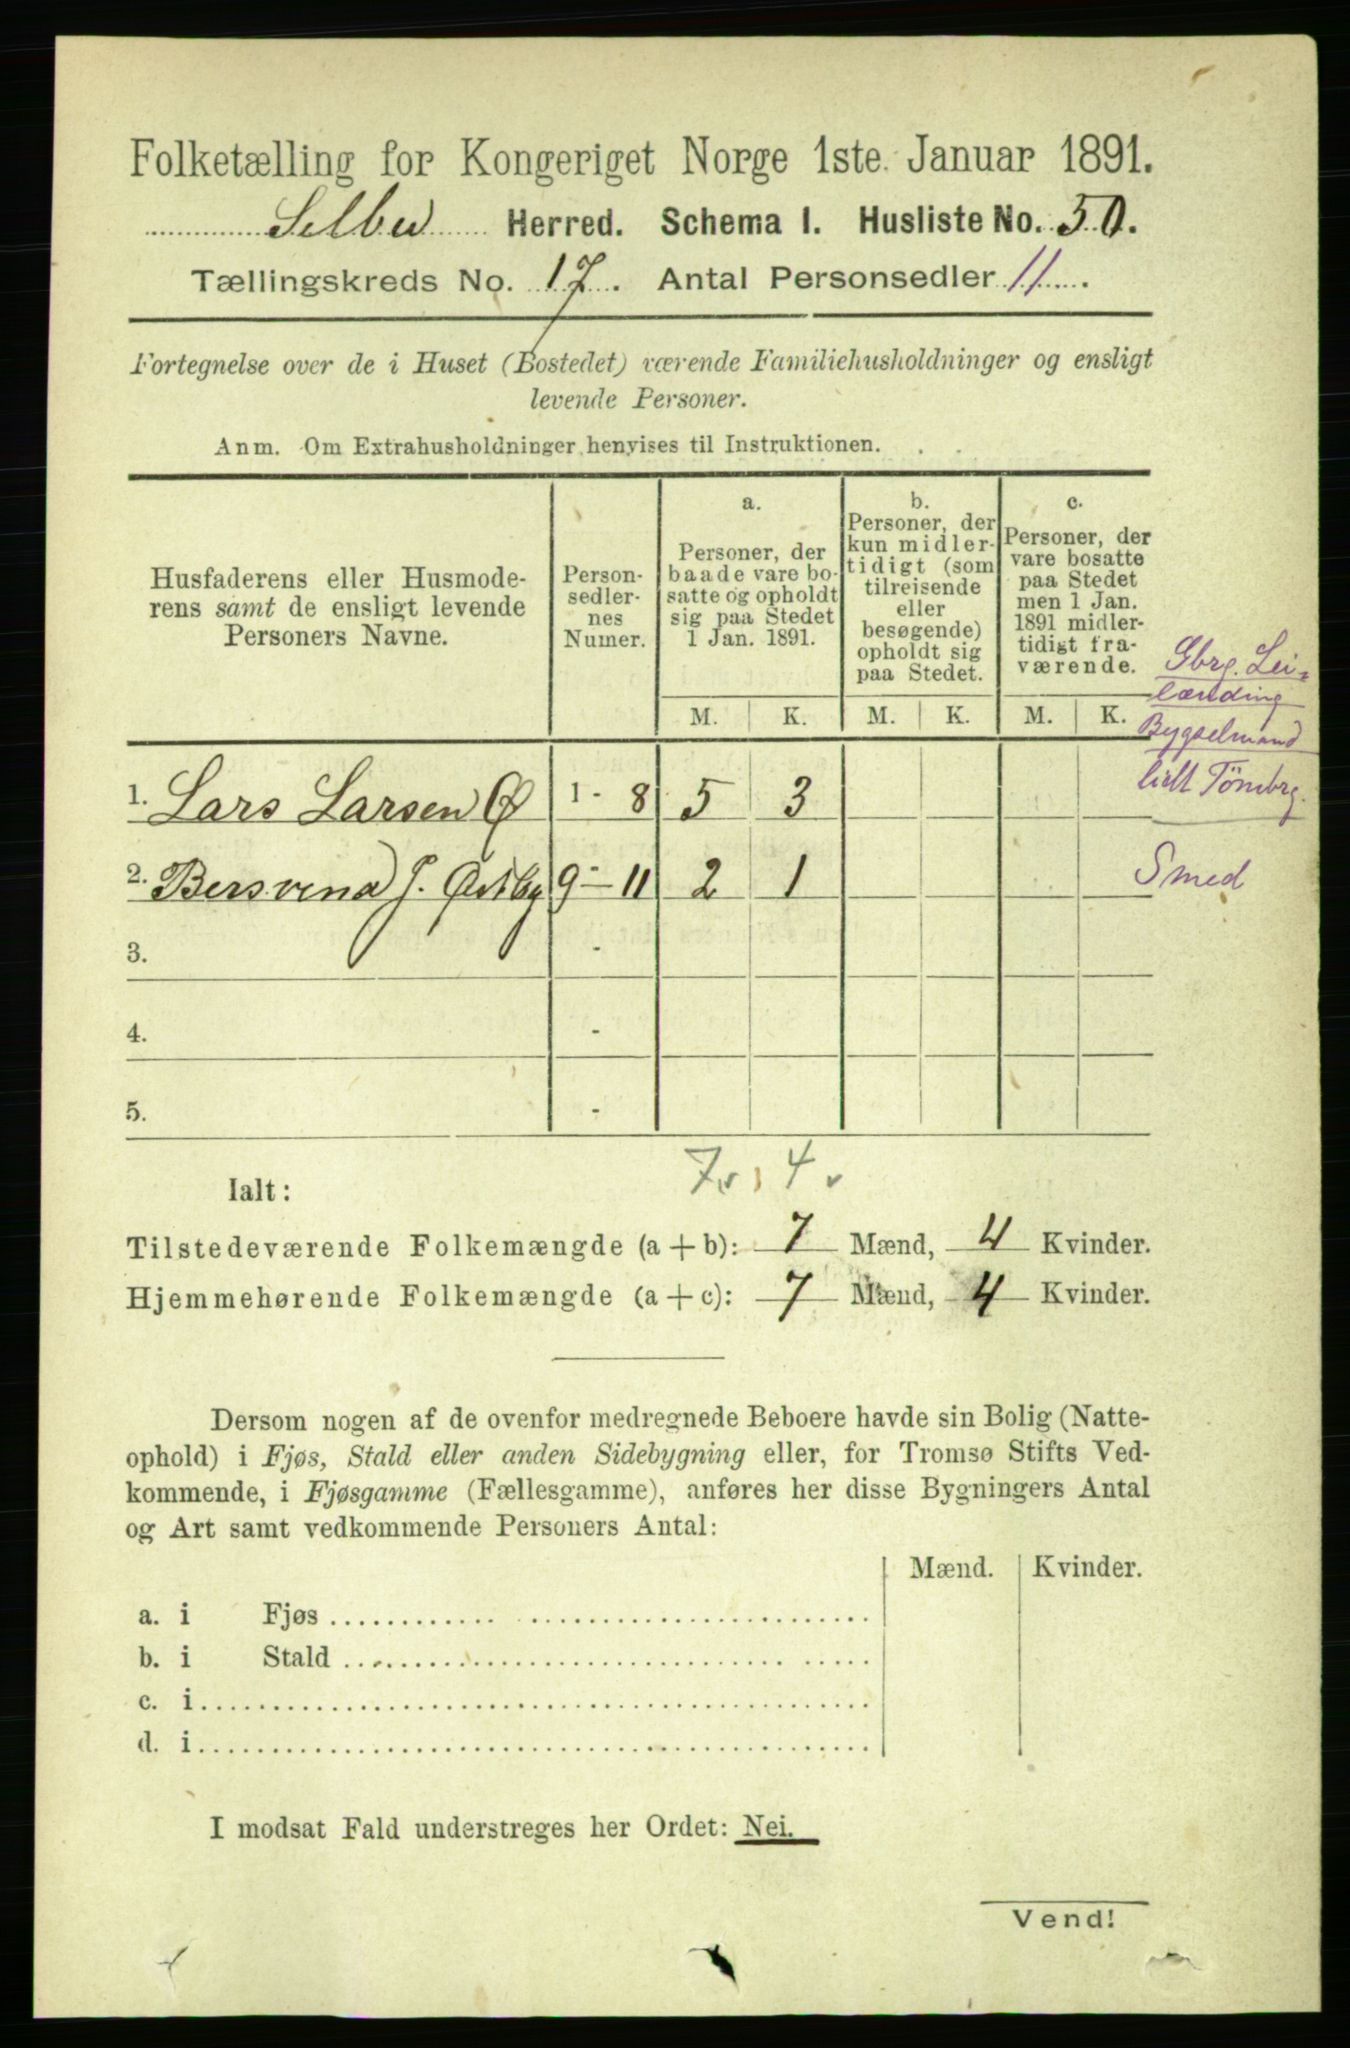 Folketælling for Kongeriget Norge 1ste Januar 1891.
Selbu Herred. Schema 1. Husliste No. 50.
Tællingskreds No. 17. Antal Personsedler 11.
Fortegnelse over de i Huset (Bostedet) værende Familiehusholdninger og ensligt
levende Personer.
Anm. Om Extrahusholdninger henvises til Instruktionen.
Husfaderens eller Husmode-
rens samt de ensligt levende
Personers Navne.
Person-
sedler-
nes
Numer.
a.
Personer, der
baade vare bo-
satte og opholdt
sig paa Stedet
1 Jan. 1891.
b.
Personer, der
kun midler-
tidigt (som
tilreisende
eller
besøgende)
opholdt sig
paa Stedet.
c.
Personer, der
vare bosatte
paa Stedet
men 1 Jan.
1891 midler-
tidigt fra-
værende.
M. K. M. K. M. K.
Gbrg. Lei-
lænding
Bygselmand
lidt Tömbrg.
1. Lars Larsen Ø 1 - 8 5 3
2. Bersvend J. Østby 9 - 11 2 1 Smed
3. -
4. -
5. -
7 4
Ialt:
Tilstedeværende Folkemængde (a + b): 7 Mænd, 4 Kvinder.
Hjemmehørende Folkemængde (a + c): 7 Mænd, 4 Kvinder.
Dersom nogen af de ovenfor medregnede Beboere havde sin Bolig (Natte-
ophold) i Fjøs, Stald eller anden Sidebygning eller, for Tromsø Stifts Ved-
kommende, i Fjøsgamme (Fællesgamme), anføres her disse Bygningers Antal
og Art samt vedkommende Personers Antal:
Mænd. Kvinder.
a. i Fjøs
b. i Stald
c. i
d. i
I modsat Fald understreges her Ordet: Nei.
Vend!